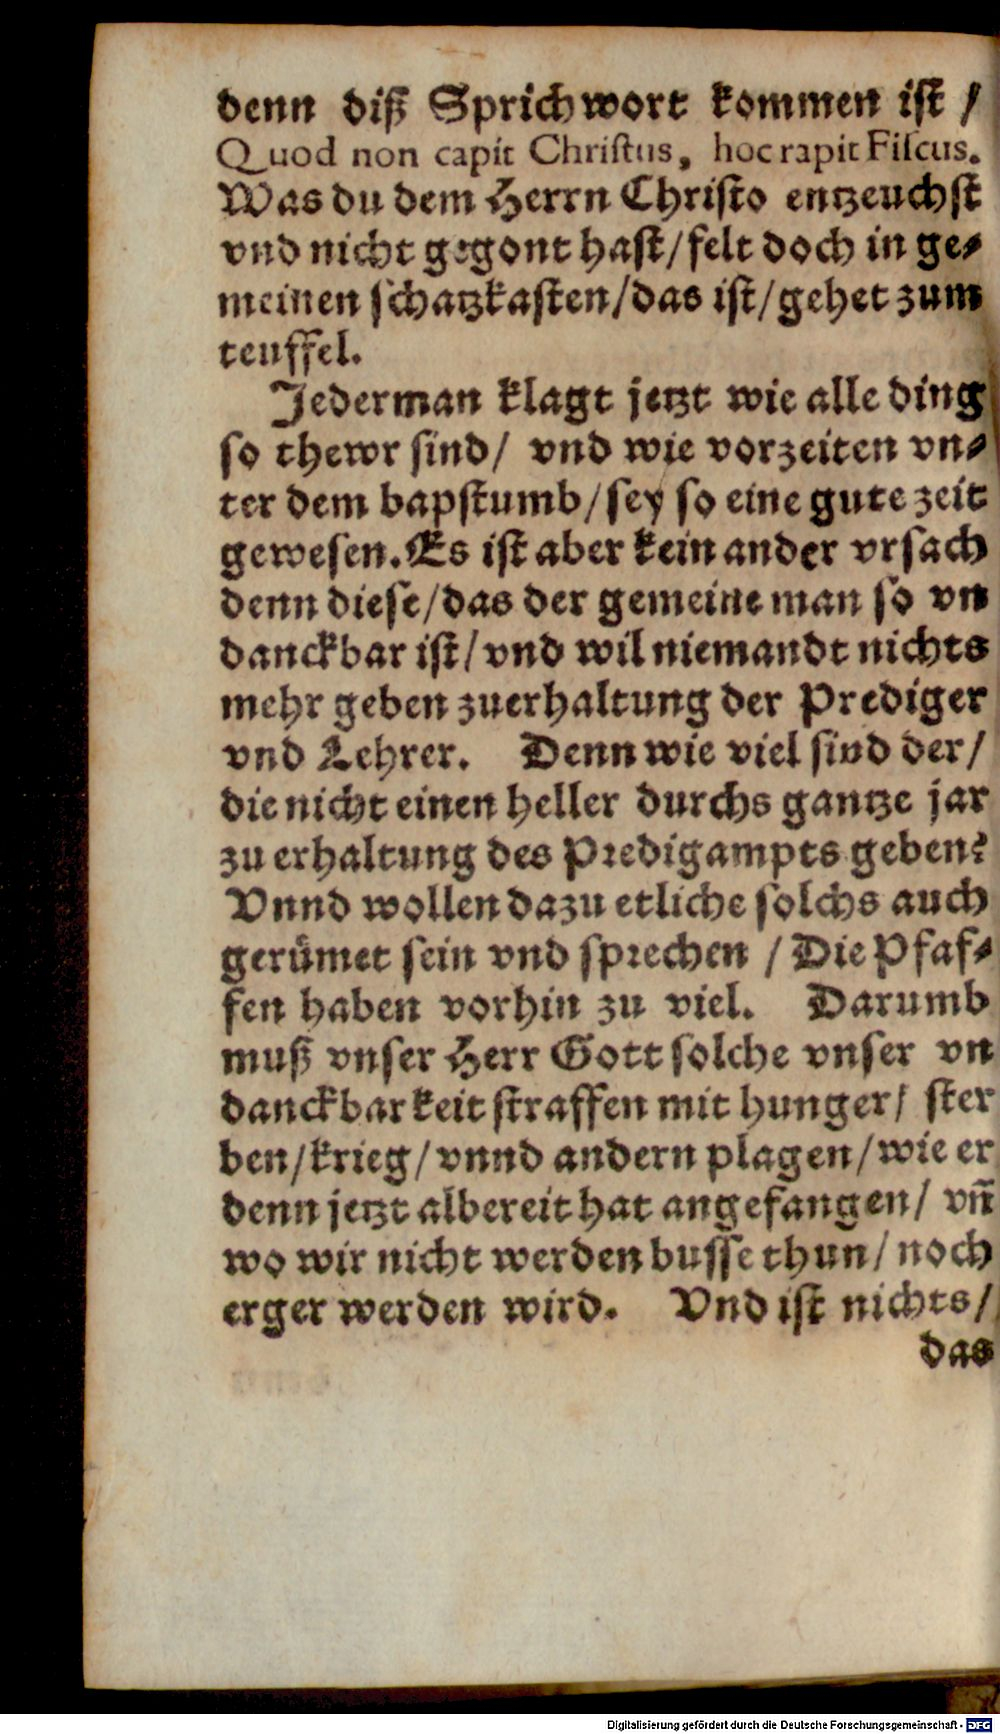 denn diß Sprichwort kommen ist /
Quod non capit Christus, hoc rapit Fiscus.
Was du dem Herrn Christo entzeuchst
vnd nicht gegont hast/felt doch in ge-
meinen schatzkasten/das ist/gehet zum
teuffel.
Jederman klagt jetzt wie alle ding
so thewr sind/ vnd wie vorzeiten vn-
ter dem bapstumb/sey so eine gute zeit
gewesen. Es ist aber kein ander vrsach
denn diese/das der gemeine man so vn
danckbar ist/vnd wil niemandt nichts
mehr geben zuerhaltung der Prediger
vnd Lehrer. Denn wie viel sind der/
die nicht einen heller durchs gantze jar
zu erhaltung des Predigampts geben?
Vnnd wollen dazu etliche solchs auch
gerümet sein vnd sprechen / Die Pfaf-
fen haben vorhin zu viel. Darumb
muß vnser Herr Gott solche vnser vn
danckbarkeit straffen mit hunger/ ster
ben/krieg/vnnd andern plagen/wie er
denn jetzt albereit hat angefangen/ vñ
wo wir nicht werden busse thun/noch
erger werden wird. Vnd ist nichts/
das
Digitalisierung gefördert durch die Deutsche Forschungsgemeinschaft - DFG